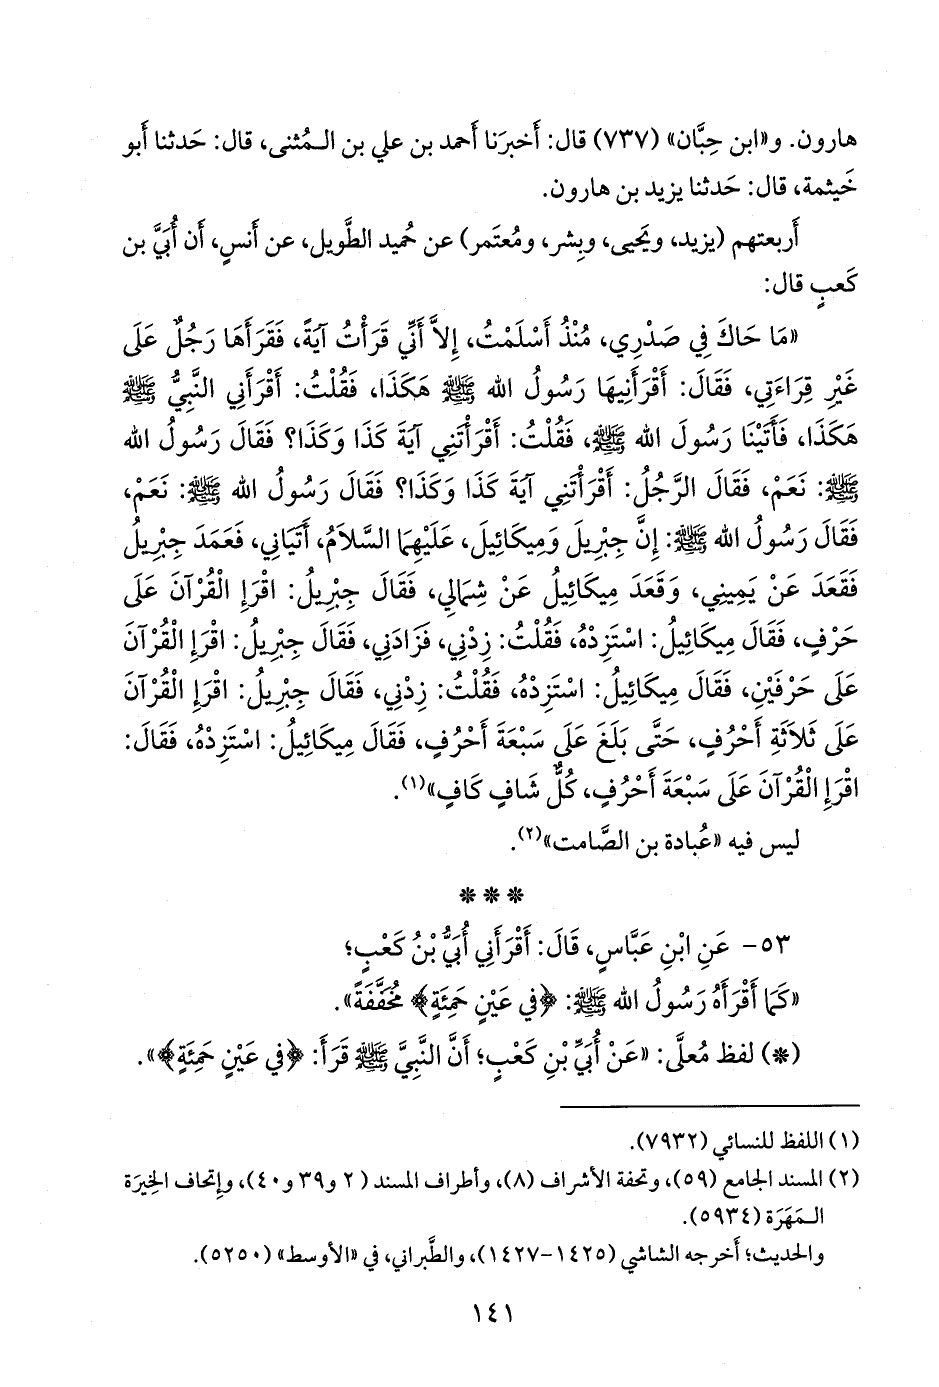 هارون. و«ابن حِبَّان» (٧٣٧) قال: أَخبرَنا أَحمد بن علي بن الـمُثنى، قال: حَدثنا أَبو
خَيثمة، قال: حَدثنا يزيد بن هارون.
أَربعتهم (يزيد، ويَحيى، وبِشر، ومُعتَمر) عن حُميد الطَّويل، عن أَنسٍ، أَن أُبَيَّ بن
كَعبٍ قال:
«مَا حَاكَ فِي صَدْرِي، مُنْذُ أَسْلَمْتُ، إِلاَّ أَنِّي قَرَأْتُ آيَةً، فَقَرَأَهَا رَجُلٌ عَلَى
غَيْرِ قِرَاءَتِي، فَقَالَ: أَقْرَأَنِيهَا رَسُولُ الله ﷺ هَكَذَا، فَقُلْتُ: أَقْرَأَنِي النَّبِيُّ ﷺ
هَكَذَا، فَأَتَيْنَا رَسُولَ الله ﷺ، فَقُلْتُ: أَقْرَأْتَنِي آيَةَ كَذَا وَكَذَا؟ فَقَالَ رَسُولُ الله
ﷺ: نَعَمْ، فَقَالَ الرَّجُلُ: أَقْرَأْتَنِي آيَةَ كَذَا وَكَذَا؟ فَقَالَ رَسُولُ الله ﷺ: نَعَمْ،
فَقَالَ رَسُولُ الله ﷺ: إِنَّ جِبْرِيلَ وَمِيكَائِيلَ، عَلَيْهِمَا السَّلاَمُ، أَتَيَانِي، فَعَمَدَ جِبْرِيلُ
فَقَعَدَ عَنْ يَمِينِي، وَقَعَدَ مِيكَائِيلُ عَنْ شِمَالِي، فَقَالَ جِبْرِيلُ: اقْرَإِ الْقُرْآنَ عَلَى
حَرْفٍ، فَقَالَ مِيكَائِيلُ: اسْتَزِدْهُ، فَقُلْتُ: زِدْنِي، فَزَادَنِي، فَقَالَ جِبْرِيلُ: اقْرَإِ الْقُرْآنَ
عَلَى حَرْفَيْنِ، فَقَالَ مِيكَائِيلُ: اسْتَزِدْهُ، فَقُلْتُ: زِدْنِي، فَقَالَ جِبْرِيلُ: اقْرَإِ الْقُرْآنَ
عَلَى ثَلاَثَةِ أَحْرُفٍ، حَتَّى بَلَغَ عَلَى سَبْعَةَ أَحْرُفٍ، فَقَالَ مِيكَائِيلُ: اسْتَزِدْهُ، فَقَالَ:
اقْرَإِ الْقُرْآنَ عَلَى سَبْعَةَ أَحْرُفٍ، كُلٌّ شَافٍ كَافٍ»(١).
ليس فيه «عُبادة بن الصَّامت»(٢).
* * *
٥٣- عَنِ ابْنِ عَبَّاسٍ، قَالَ: أَقْرَأَنِي أُبَيُّ بْنُ كَعْبٍ؛
«كَمَا أَقْرَأَهُ رَسُولُ الله ﷺ: ﴿فِي عَيْنٍ حَمِئَةٍ﴾ مُخَفَّفَةً».
(*) لفظ مُعلَّى: «عَنْ أُبَيِّ بْنِ كَعْبٍ؛ أَنَّ النَّبِيَّ ﷺ قَرَأَ: ﴿فِي عَيْنٍ حَمِئَةٍ﴾».
(١) اللفظ للنسائي (٧٩٣٢).
(٢) المسند الجامع (٥٩)، وتحفة الأشراف (٨)، وأطراف المسند (٢ و٣٩ و٤٠)، وإتحاف الخِيرَة
الـمَهَرَة (٥٩٣٤).
والحديث؛ أخرجه الشاشي (١٤٢٥-١٤٢٧)، والطَّبراني، في «الأوسط» (٥٢٥٠).
١٤١